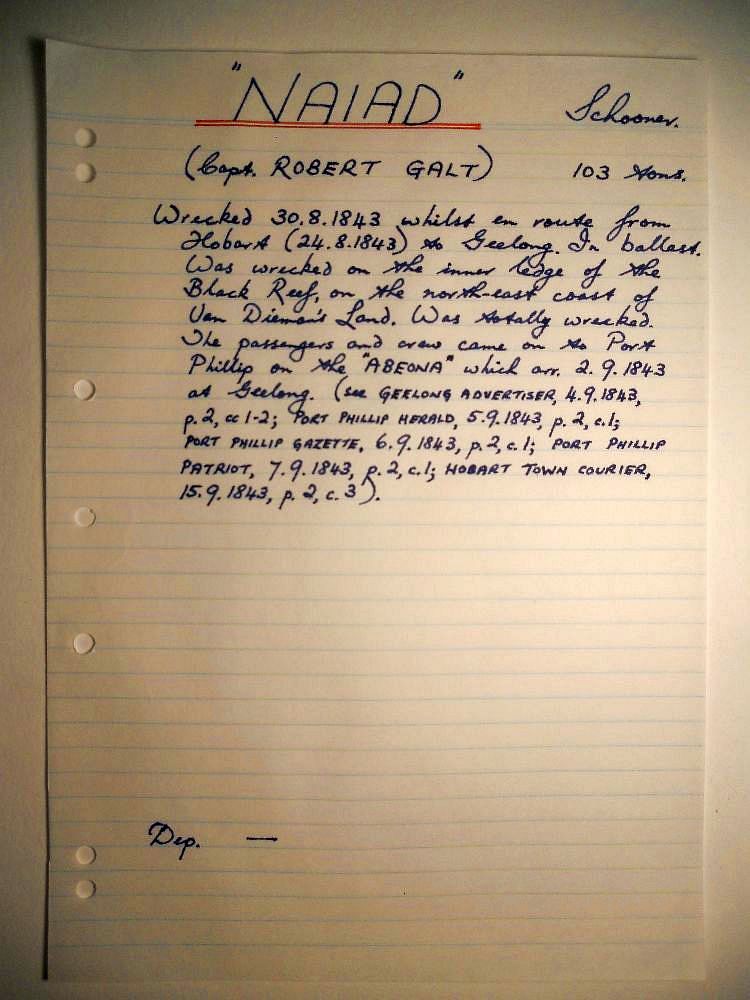 "NAIAD" Schooner.
(Capt. ROBERT GALT) 103 tons.
Wrecked 30.8.1843 whilst en route from
Hobart (24.8.1843) to Geelong. In ballast.
Was wrecked on the inner ledge of the
Black Reef, on the north-east coast of
Van Dieman's Land. Was totally wrecked.
The passengers and crew came on to Port
Phillip on the "ABEONA" which arr. 2.9.1843
at Geelong. (see GEELONG ADVERTISER, 4.9.1843,
p.2, cc 1-2; PORT PHILLIP HERALD, 5.9.1843, p.2, c.1;
PORT PHILLIP GAZETTE, 6.9.1843, p.2, c.1; PORT PHILLIP
PATRIOT, 7.9.1843, p.2, c.1; HOBART TOWN COURIER,
15.9.1843, p.2, c.3).
Dep. —